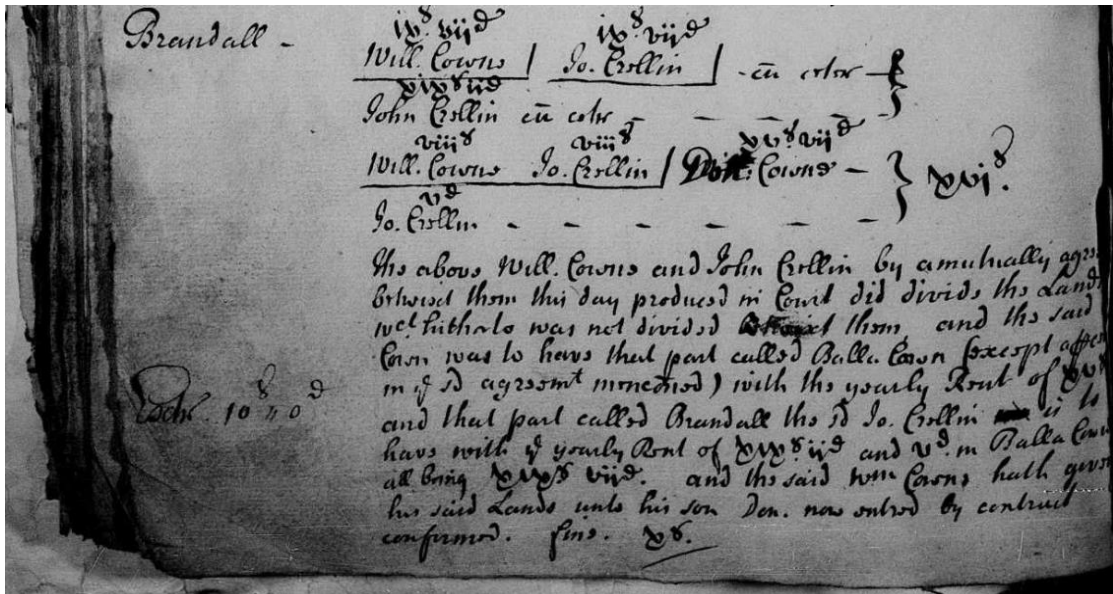 ixs. viid ixs. viid
Brandall - Will. Cowne / Jo. Crellin / - cū ceter -
xixs iid
John Crellin cū cetr - - - - -
viiis viiis xvs. viid
Will. Cowne Jo. Crellin / Cowne - } xvis.
vd
Jo. Crellin - - - - - -
The above Will. Cowne and John Crellin by a mutually agree
betwixt them this day produced in Court did divide the Lands
wch hitherto was not divided them, and the said
Cown was to have that part called Balla Cown (except a
in ye sd agreemt) with the yearly Rent of xvs
Endr. 10s " 0d and that part called Brandall the sd Jo. Crellin is to
have with ye yearly Rent of xixs iid and vd in Balla Cown
all being xixs viid. and the said Wm Cowne hath given
his said Lands unto his son Don. now entred by contract
confirmed. fine. xs.